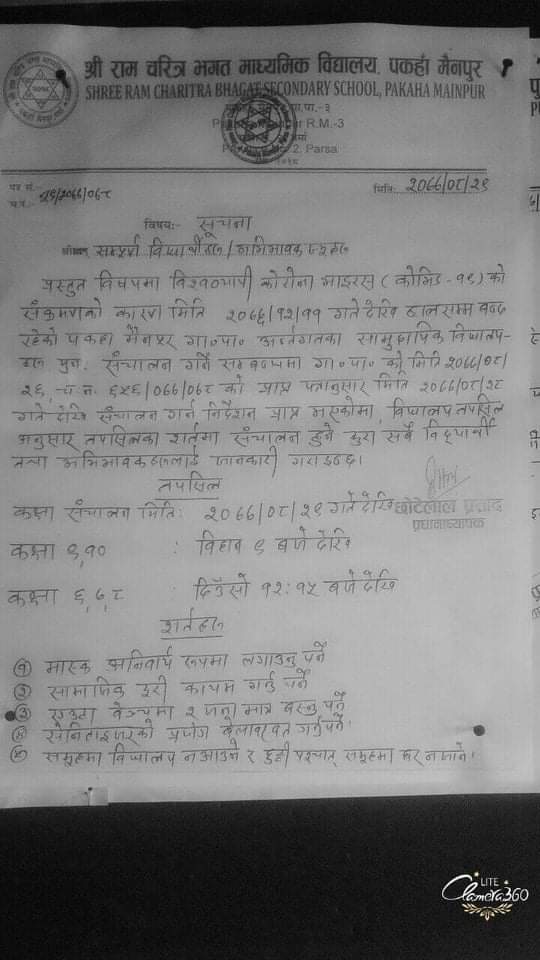 श्री राम चरित्र भगत माध्यमिक विद्यालय, पकहाँ मैनपुर
SHREE RAM CHARITRA BHAGAT SECONDARY SCHOOL, PAKAHA MAINPUR
गा.पा.-३
R.M.-3
2. Parsa
प.सं.:-
च.नं.:- २९/२०७७/०७८
मिति:- २०७७/०८/२९
विषय:- सूचना
श्रीमान् सम्पूर्ण विद्यार्थीहरू/अभिभावकहरू
प्रस्तुत विषयमा विश्वव्यापी कोरोना भाइरस (कोभिड-१९) को
संक्रमणको कारण मिति २०७६/१२/११ गते देखि हालसम्म बन्द
रहेको पकहा मैनपुर गा॰पा॰ अर्न्तगतका सामुदायिक विद्यालय-
हरू पुनः संचालन गर्ने सम्बन्धमा गा॰पा॰ को मिति २०७७/०८/
२६, च.नं. ६५६/०७७/०७८ को प्राप्त पत्रानुसार मिति २०७७/०८/२८
गते देखि संचालन गर्न निर्देशन प्राप्त भएकोमा, विद्यालय तपसिल
अनुसार तपसिलका शर्तमा संचालन हुने कुरा सर्वे विद्यार्थी
तथा अभिभावकहरूलाई जानकारी गराइन्छ।
तपसिल
कक्षा संचालन मिति: २०७७/०८/२९ गते देखि
छोटेलाल प्रसाद
प्रधानाध्यापक
कक्षा ९,१० : विहान ९ बजे देखि
कक्षा ६,७,८ : दिउँसो १२:१५ बजे देखि
शर्तहरू
① मास्क अनिवार्य रूपमा लगाउनु पर्ने
② सामाजिक दूरी कायम गर्नु पर्ने
③ एउटा बेञ्चमा २ जना मात्र बस्नु पर्ने
④ सेनिटाइजरको प्रयोग बेलाबखत गर्नुपर्ने।
⑤ समूहमा विद्यालय नआउने र छुट्टी पश्चात् समूहमा घर नजाने।
LITE
Camera360